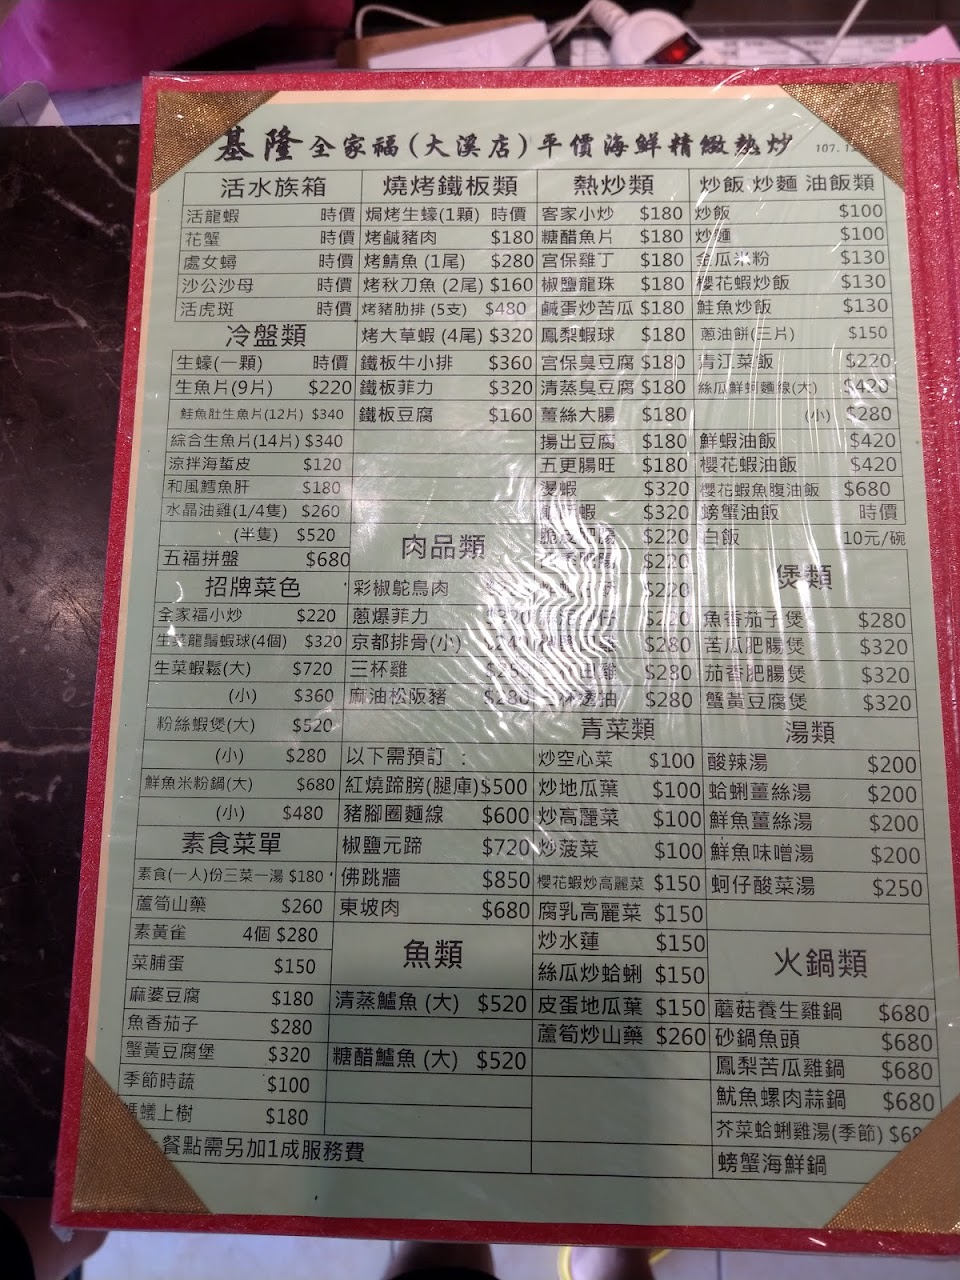 基隆全家福(大溪店)平價海鮮精緻熱炒
107.1
活水族箱
活龍蝦 時價
花蟹 時價
處女蟳 時價
沙公沙母 時價
活虎斑 時價
冷盤類
生蠔(一顆) 時價
生魚片(9片) $220
鮭魚肚生魚片(12片) $340
綜合生魚片(14片) $340
涼拌海蜇皮 $120
和風鱈魚肝 $180
水晶油雞(1/4隻) $260
(半隻) $520
五福拼盤 $680
招牌菜色
全家福小炒 $220
生菜龍鬚蝦球(4個) $320
生菜蝦鬆(大) $720
(小) $360
粉絲蝦煲(大) $520
(小) $280
鮮魚米粉鍋(大) $680
(小) $480
素食菜單
素食(一人)份三菜一湯 $180
蘆筍山藥 $260
素黃雀 4個 $280
菜脯蛋 $150
麻婆豆腐 $180
魚香茄子 $280
蟹黃豆腐堡 $320
季節時蔬 $100
螞蟻上樹 $180
餐點需另加1成服務費
燒烤鐵板類
焗烤生蠔(1顆) 時價
烤鹹豬肉 $180
烤鯖魚 (1尾) $280
烤秋刀魚 (2尾) $160
烤豬肋排 (5支) $480
烤大草蝦 (4尾) $320
鐵板牛小排 $360
鐵板菲力 $320
鐵板豆腐 $160
肉品類
彩椒鴕鳥肉
蔥爆菲力 $320
京都排骨(小) $240
三杯雞
麻油松阪豬 $280
以下需預訂 :
紅燒蹄膀(腿庫) $500
豬腳圈麵線 $600
椒鹽元蹄 $720
佛跳牆 $850
東坡肉 $680
魚類
清蒸鱸魚 (大) $520
糖醋鱸魚 (大) $520
熱炒類
客家小炒 $180
糖醋魚片 $180
宮保雞丁 $180
椒鹽龍珠 $180
鹹蛋炒苦瓜 $180
鳳梨蝦球 $180
宮保臭豆腐 $180
清蒸臭豆腐 $180
薑絲大腸 $180
揚出豆腐 $180
五更腸旺 $180
燙蝦 $320
蝦 $320
脆皮肥腸 $220
$220
$220
$220
$280
$280
三杯透抽 $280
青菜類
炒空心菜 $100
炒地瓜葉 $100
炒高麗菜 $100
炒菠菜 $100
櫻花蝦炒高麗菜 $150
腐乳高麗菜 $150
炒水蓮 $150
絲瓜炒蛤蜊 $150
皮蛋地瓜葉 $150
蘆筍炒山藥 $260
炒飯 炒麵 油飯類
炒飯 $100
炒麵 $100
金瓜米粉 $130
櫻花蝦炒飯 $130
鮭魚炒飯 $130
蔥油餅(三片) $150
青江菜飯 $220
絲瓜鮮蚵麵線(大) $420
(小) $280
鮮蝦油飯 $420
櫻花蝦油飯 $420
櫻花蝦魚腹油飯 $680
螃蟹油飯 時價
白飯 10元/碗
煲類
魚香茄子煲 $280
苦瓜肥腸煲 $320
茄香肥腸煲 $320
蟹黃豆腐煲 $320
湯類
酸辣湯 $200
蛤蜊薑絲湯 $200
鮮魚薑絲湯 $200
鮮魚味噌湯 $200
蚵仔酸菜湯 $250
火鍋類
蘑菇養生雞鍋 $680
砂鍋魚頭 $680
鳳梨苦瓜雞鍋 $680
魷魚螺肉蒜鍋 $680
芥菜蛤蜊雞湯(季節) $68
螃蟹海鮮鍋